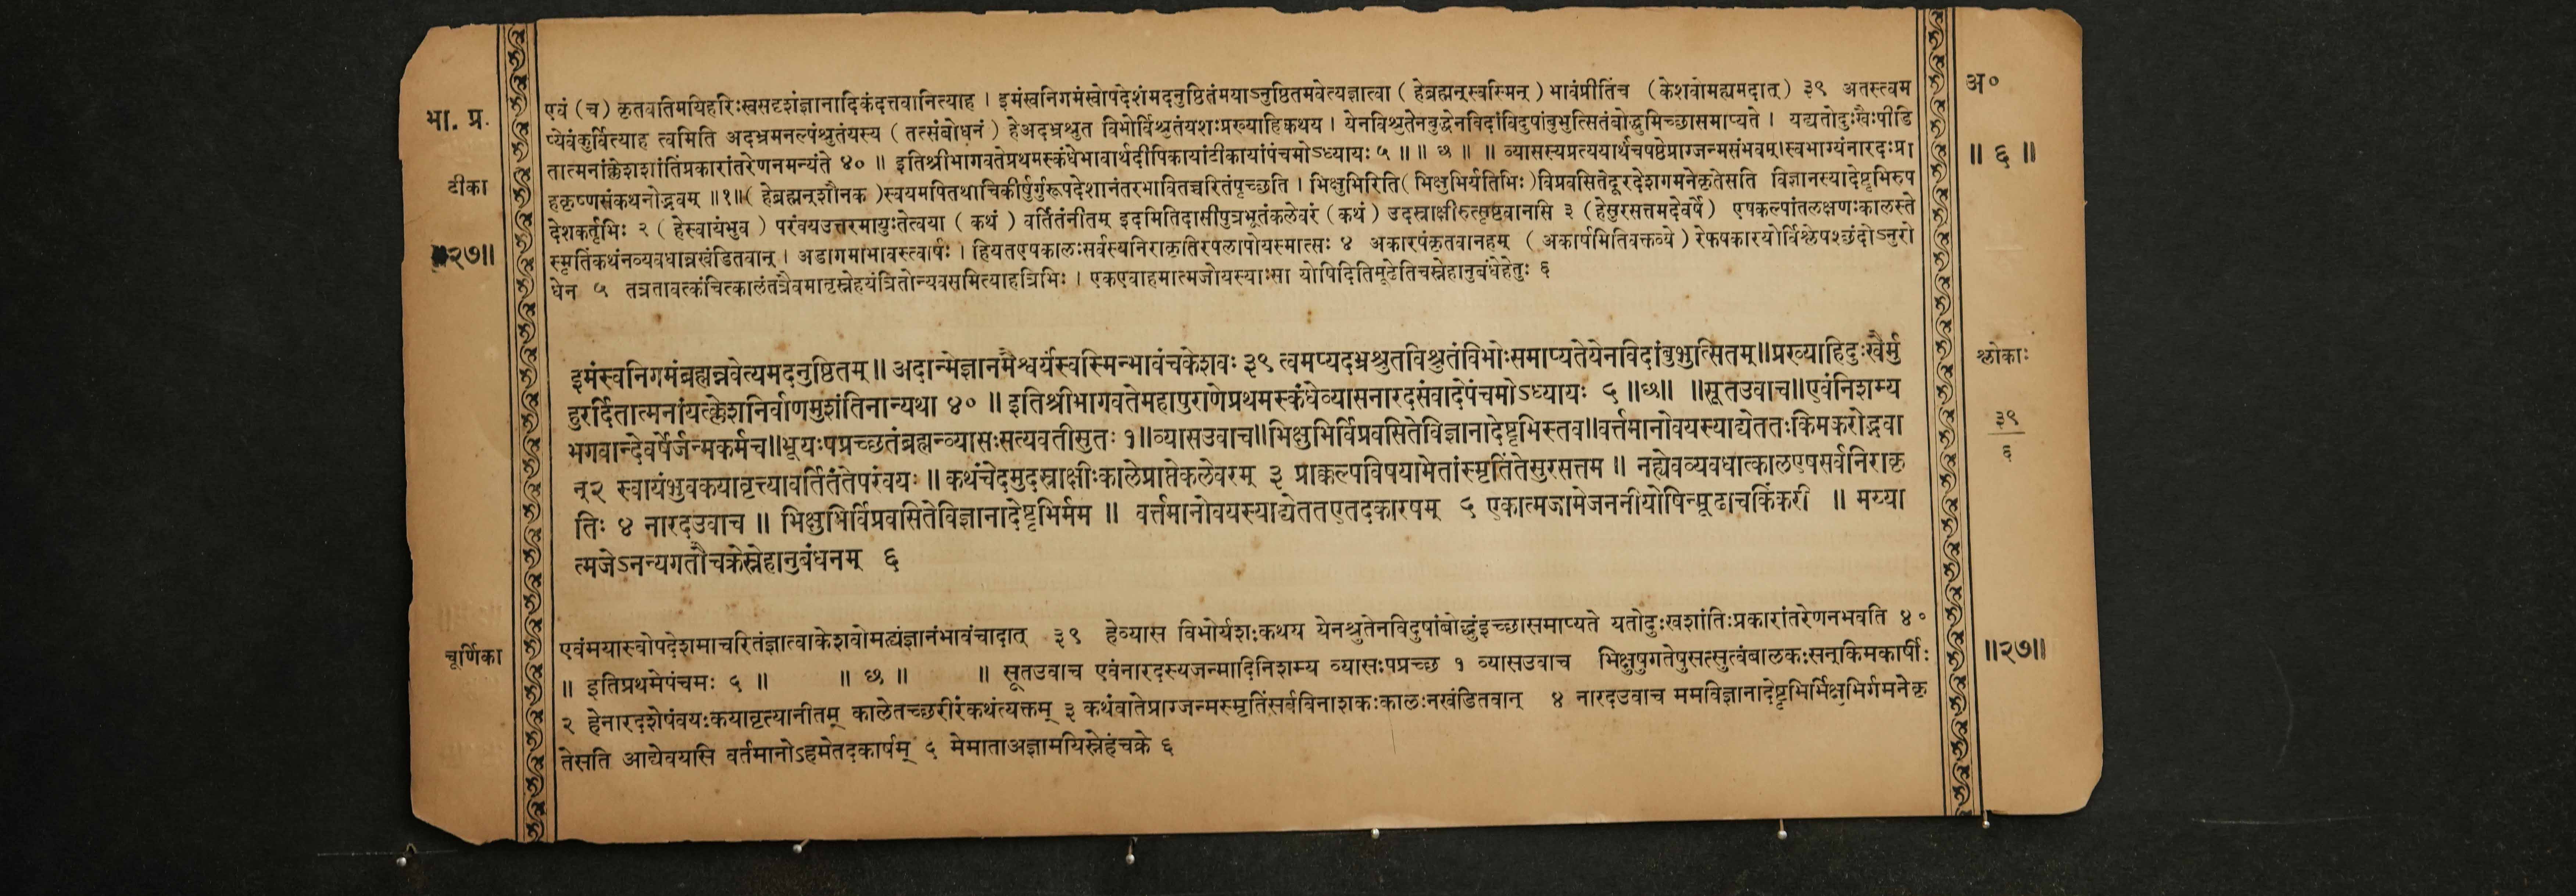 भा. प्र.
टीका
॥२७॥
एवं (च) कृतवतिमयिहरिःस्वसदृशंज्ञानादिकंदत्तवानित्याह । इमंस्वनिगमंस्वोपदेशंमदनुष्ठितंमयाऽनुष्ठितमवेत्यज्ञात्वा ( हेब्रह्मन्स्वस्मिन् ) भावंप्रीतिंच (केशवोमह्यमदात्) ३९ अतस्त्वम
प्येवंकुर्वित्याह त्वमिति अदभ्रमनल्पंश्रुतंयस्य ( तत्संबोधनं ) हेअदभ्रश्रुत विभोर्विश्रुतंयशःप्रख्याहिकथय । येनविश्रुतेनबुद्धेनविदांविदुषांबुभुत्सितंबोद्धुमिच्छासमाप्यते । यद्यतोदुःखैःपीडि
तात्मनांक्लेशशांतिंप्रकारांतरेणनमन्यंते ४० ॥ इतिश्रीभागवतेप्रथमस्कंधेभावार्थदीपिकायांटीकायांपंचमोऽध्यायः ५ ॥ ॥ छ ॥ ॥ व्यासस्यप्रत्ययार्थंचषष्ठेप्राग्जन्मसंभवम्।स्वभाग्यंनारदःप्रा
हकृष्णसंकथनोद्भवम् ॥१॥( हेब्रह्मन्शौनक )स्वयमपितथाचिकीर्षुर्गुरूपदेशानंतरभावितच्चरितंपृच्छति । भिक्षुभिरिति( भिक्षुभिर्यतिभिः )विप्रवसितेदूरदेशगमनेकृतेसति विज्ञानस्यादेष्टृभिरुप
देशकर्तृभिः २ ( हेस्वायंभुव ) परंवयउत्तरमायुःतेत्वया ( कथं ) वर्तितंनीतम् इदमितिदासीपुत्रभूतंकलेवरं ( कथं ) उदस्राक्षीरुत्सृष्टवानसि ३ (हेसुरसत्तमदेवर्षे) एषकल्पांतलक्षणःकालस्ते
स्मृतिंकथंनव्यवधान्नखंडितवान् । अडागमाभावस्त्वार्षः । हियतएषकालःसर्वस्यनिराकृतिरपलापोयस्मात्सः ४ अकारषंकृतवानहम् ( अकार्षमितिवक्तव्ये ) रेफषकारयोर्विश्लेषश्छंदोऽनुरो
धेन ५ तत्रतावत्कंचित्कालंतत्रैवमातृस्नेहयंत्रितोन्यवसमित्याहत्रिभिः । एकएवाहमात्मजोयस्याःसा योषिदितिमूढेतिचस्नेहानुबंधेहेतुः ६
अ०
॥ ६ ॥
इमंस्वनिगमंब्रह्मन्नवेत्यमदनुष्ठितम् ॥ अदान्मेज्ञानमैश्वर्यंस्वस्मिन्भावंचकेशवः ३९ त्वमप्यदभ्रश्रुतविश्रुतंविभोःसमाप्यतेयेनविदांबुभुत्सितम्॥प्रख्याहिदुःखैर्मु
हुरर्दितात्मनांयत्क्लेशनिर्वाणमुशंतिनान्यथा ४० ॥ इतिश्रीभागवतेमहापुराणेप्रथमस्कंधेव्यासनारदसंवादेपंचमोऽध्यायः ५ ॥छ॥ ॥सूतउवाच॥एवंनिशम्य
भगवान्देवर्षेर्जन्मकर्मच॥भूयःपप्रच्छतंब्रह्मन्व्यासःसत्यवतीसुतः १॥व्यासउवाच॥भिक्षुभिर्विप्रवसितेविज्ञानादेष्टृभिस्तव॥वर्त्तमानोवयस्याद्येततःकिमकरोद्भवा
न्२ स्वायंभुवकयावृत्त्यावर्तितंतेपरंवयः ॥ कथंचेदमुदस्राक्षीःकालेप्राप्तेकलेवरम् ३ प्राक्कल्पविषयामेतांस्मृतिंतेसुरसत्तम ॥ नह्येवव्यवधात्कालएषसर्वनिराकृ
तिः ४ नारदउवाच ॥ भिक्षुभिर्विप्रवसितेविज्ञानादेष्टृभिर्मम ॥ वर्त्तमानोवयस्याद्येततएतदकारषम् ५ एकात्मजामेजननीयोषिन्मूढाचकिंकरी ॥ मय्या
त्मजेऽनन्यगतौचक्रेस्नेहानुबंधनम् ६
श्लोकाः
३९
६
चूर्णिका
एवंमयास्वोपदेशमाचरितंज्ञात्वाकेशवोमह्यंज्ञानंभावंचादात् ३९ हेव्यास विभोर्यशःकथय येनश्रुतेनविदुषांबोद्धुंइच्छासमाप्यते यतोदुःखशांतिःप्रकारांतरेणनभवति ४०
॥ इतिप्रथमेपंचमः ५ ॥ ॥ छ ॥ ॥ सूतउवाच एवंनारदस्यजन्मादिनिशम्य व्यासःपप्रच्छ १ व्यासउवाच भिक्षुषुगतेषुसत्सुत्वंबालकःसन्किमकार्षीः
२ हेनारदशेषंवयःकयावृत्यानीतम् कालेतच्छरीरंकथंत्यक्तम् ३ कथंवातेप्राग्जन्मस्मृतिंसर्वविनाशकःकालःनखंडितवान् ४ नारदउवाच ममविज्ञानादेष्टृभिर्भिक्षुभिर्गमनेकृ
तेसति आद्येवयसि वर्तमानोऽहमेतदकार्षम् ५ मेमाताअज्ञामयिस्नेहंचक्रे ६
॥२७॥